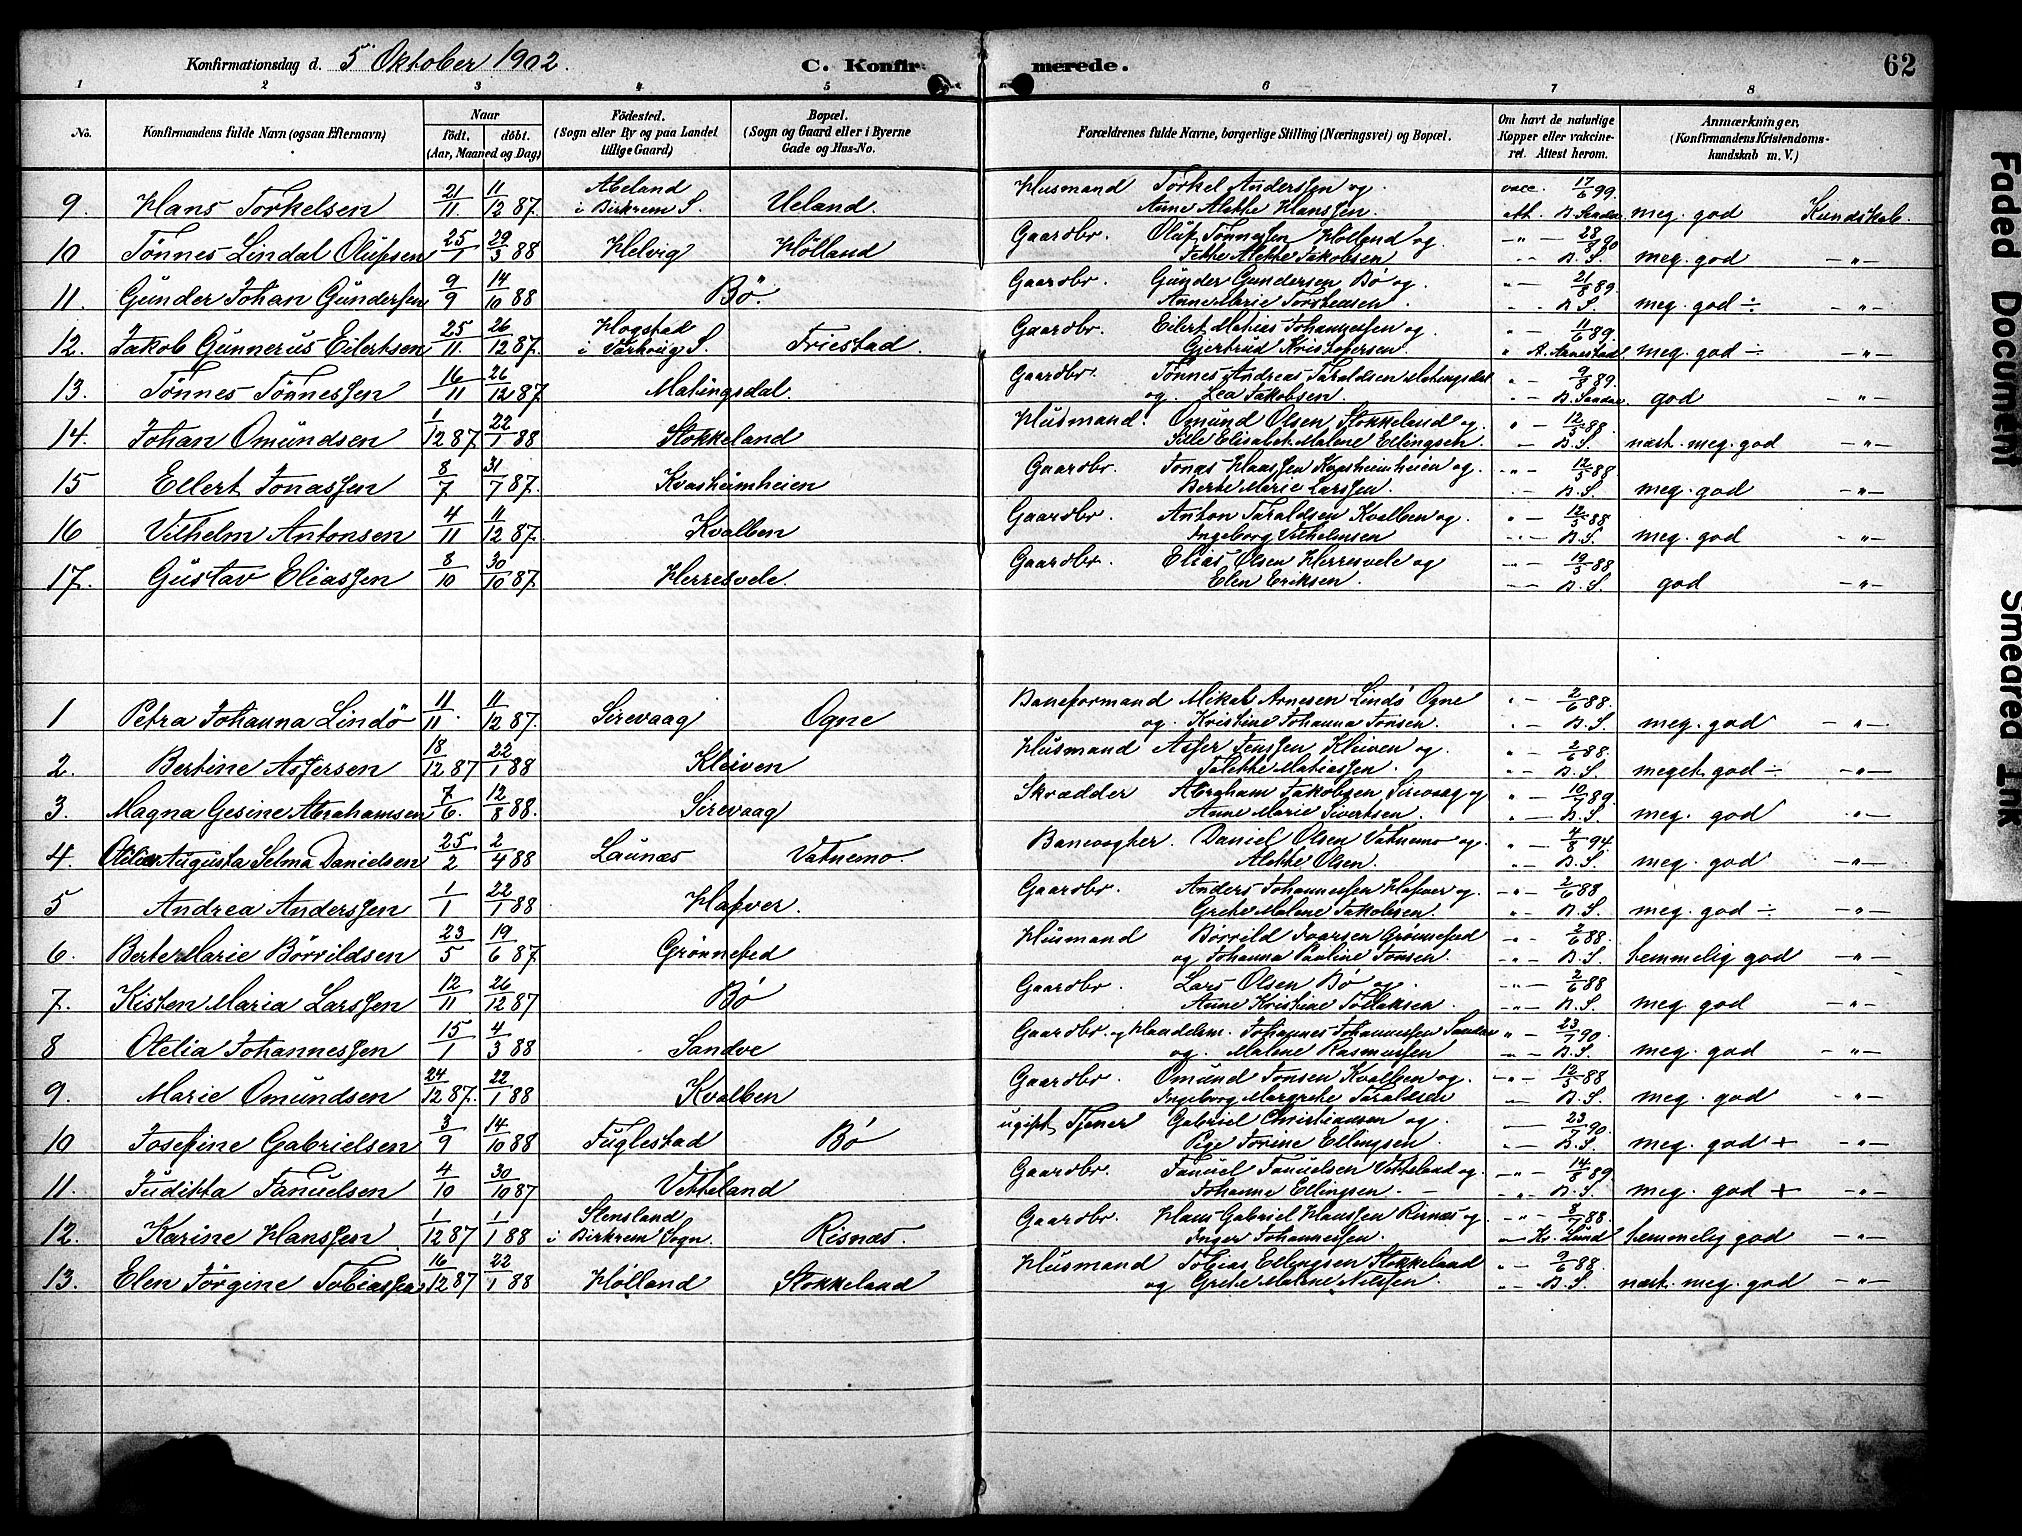 Konfirmationsdag d. 5 Oktober 1902. C. Konfirmerede. 62
1 2 3 4 5 6 7 8
No. Konfirmandens fulde Navn (ogsaa Efternavn) Naar født. døbt. (Aar, Maaned og Dag) Fødested. (Sogn eller By og paa Landet tillige Gaard) Bopæl. (Sogn og Gaard eller i Byerne Gade og Hus-No. Forældrenes fulde Navne, borgerlige Stilling (Næringsvei) og Bopæl. Om havt de naturlige Kopper eller vakcineret. Attest herom. Anmærkninger, (Konfirmandens Kristendomskundskab m. V.)
9. Hans Torkelsen 21/11. 11/12 87. Aveland i Birkrem S. Ueland. Husmand Torkel Anderssen og Anne Alette Hanssen. vacc. 17/6 99. att. meg. god Kundskab.
10 Tønnes Lindal Olufsen 25/1 29/3 88 Helvig Hölland Gaardbr. Oluf Tønnessen Hölland og Jette Alette Jakobsen 28/8 90 B. S. meg. god -"-
11. Gunder Johan Gundersen 9/9 14/10 88 Bö. Gaardbr. Gunder Gundersen Bö og Anne Marie Torstensen. 21/8 89. B. S. meg. god ÷ -"-
12. Jakob Gunnerus Eilertsen 25/11. 26/12 87. Hogstad i Varhoug S. Friestad. Gaardbr. Eilert Matias Johannessen og Gjertrud Kristofersen. 11/6 89. A. Aanestad meg. god ÷ -"-
13. Tønnes Tønnessen 16/11 26/12 87. Matingsdal. Gaardbr. Tønnes Andreas Taraldsen Matingsdal og Lea Jakobsen. 9/8 89. god -"-
14. Johan Omundsen 1/12 87. 22/1 88 Stokkeland Husmand. Omund Olsen Stokkeland og Sille Elisabet Malene Ellingsen. 12/5 88. B. S. næst. meg. god -"-
15 Ellert Jonassen 8/7 31/7 87. Kvasheimheien Gaardbr. Jonas Hanssen Kvasheimheien og Berte Marie Larssen. 12/5 88 B. S. meg. god -"-
16 Vilhelm Antonsen 4/11 11/12 87. Kvalben Gaardbr. Anton Taraldsen Kvalben og Ingeborg Vilhelmsen 12/5 88 B. S. meg. god -"-
17. Gustav Eliassen 8/10 30/10 87. Herresvele. Gaardbr. Elias Olsen Herresvele og Elen Eriksen. 19/5 88. B. S. god -"-
1 Petra Johanna Lindö 11/11. 11/12 87. Sirevaag Ogne Baneformand Mikal Arnesen Lindö Ogne og Kristine Johanna Jonsen. 2/6 88. B. S. meg. god -"-
2. Bertine Assersen 18/12 87 22/1 88 Kleiven Husmand Asser Jenssen Kleiven og Talette Matiassen. 2/6 88. B. S. meget god ÷ -"-
3. Magna Gesine Abrahamsen 7/6. 12/8 88. Sirevaag Skrædder Abraham Jakobsen Sirevaag og Anne Marie Sivertsen. 10/7 89. B. S. meg. god -"-
4. Otelie Augusta Selma Danielsen 25/2 2/4 88 Launæs Vatnemo. Banevogter. Daniel Olsen Vatnemo og Alette Olsen. 4/8 94. B. S. meg. god -"-
5 Andrea Anderssen 1/1 22/1 88 Hafver. Gaardbr. Anders Johannessen Hafver og Grethe Malene Jakobsen. 2/6 88 B. S. meg. god ÷ -"-
6. Berte Marie Börrildsen 23/5 19/6 87. Grönnefed Husmand Börrild Ivarsen Grönnefed og Johanna Pauline Jonsen. 2/6 88. B. S. temmelig god -"-
7. Kisten Maria Larssen 12/11 26/12 87 Bö Gaardbr. Lars Olsen Bö og Anne Kristine Tollaksen. 2/6 88 B. S. meg. god -"-
8 Otelia Johannessen 15/1 4/3 88 Sandve Gaardbr. og Handelsm. Johannes Johannessen og Malene Rasmussen 23/7 90. B. S. meg. god -"-
9. Marie Omundsen 24/12 87. 22/1 88 Kvalben Gaardbr. Omund Jonsen Kvalben og Ingeborg Margrethe Taraldsen 12/5 88 B. S. meg. god -"-
10 Josefine Gabrielsen 3/9 14/10 88 Fuglestad Bö ugift Tjener Gabriel Christiansen og Pige Torine Ellingsen. 23/7 90. B. S. meg. god + -"-
11. Juditta Fanuelsen 4/10 30/10 87 Vetteland Gaardbr. Fanuel Fanuelsen Vetteland og Johanne Ellingsen. 14/8 89 B. S. meg. god + -"-
12. Karine Hanssen 1/12 87 1/1 88 Stensland i Birkrem Sogn. Risnæs. Gaardbr. Hans Gabriel Hanssen Risnæs og Inger Johannessen. 8/7 88. Kr. Lund temmelig god -"-
13. Elen Jörgine Tobiassen 16/12 87 22/1 88 Hölland Stokkeland Husmand Tobias Ellingsen Stokkeland og Grethe Malene Nilssen. 9/6 88. B. S. næst. meg. god -"-
Faded Document
Smeared Ink